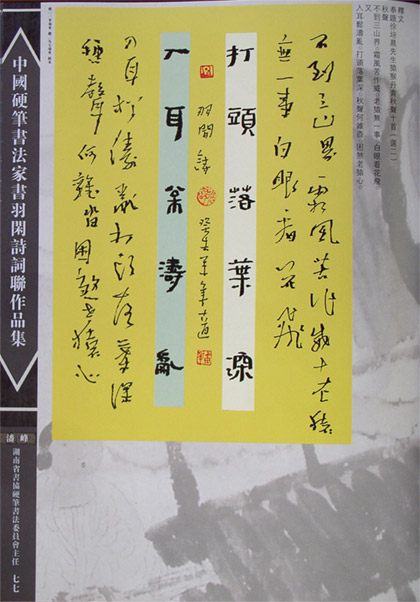 釋文
奉題徐培晨先生猿猴丹青秋聲十首(選二)
秋聲
不到三山界,霜風苦作威。老猿無一事,白眼看花飛。
又
入耳鬆濤亂,打頭落葉深。秋聲何雜沓,困煞老猿心。
不到三山界霜風苦作威老猿
無一事白眼看花飛
打頭落葉深
羽閑詩
入耳松濤亂
入耳松濤亂打頭落葉深
秋聲何雜沓困煞老猿心
中國硬筆書法家書羽閑詩詞聯作品集
峰
湖南省書協硬筆書法委員會主任
七七